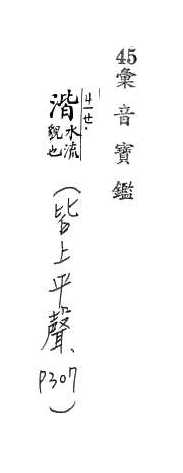 45彙音寶鑑
湝 ㄐㄧㄝ 水流貌也
(皆上平聲、P307)